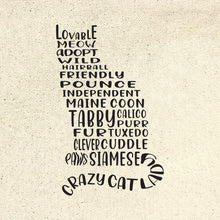 LOVABLE
MEOW
ADOPT
WILD
HAIRBALL
FRIENDLY
POUNCE
INDEPENDENT
MAINE COON
TABBY CALICO
PURR
FUR TUXEDO
CLEVER CUDDLE
PAWS SIAMESE
CRAZY CAT LADY